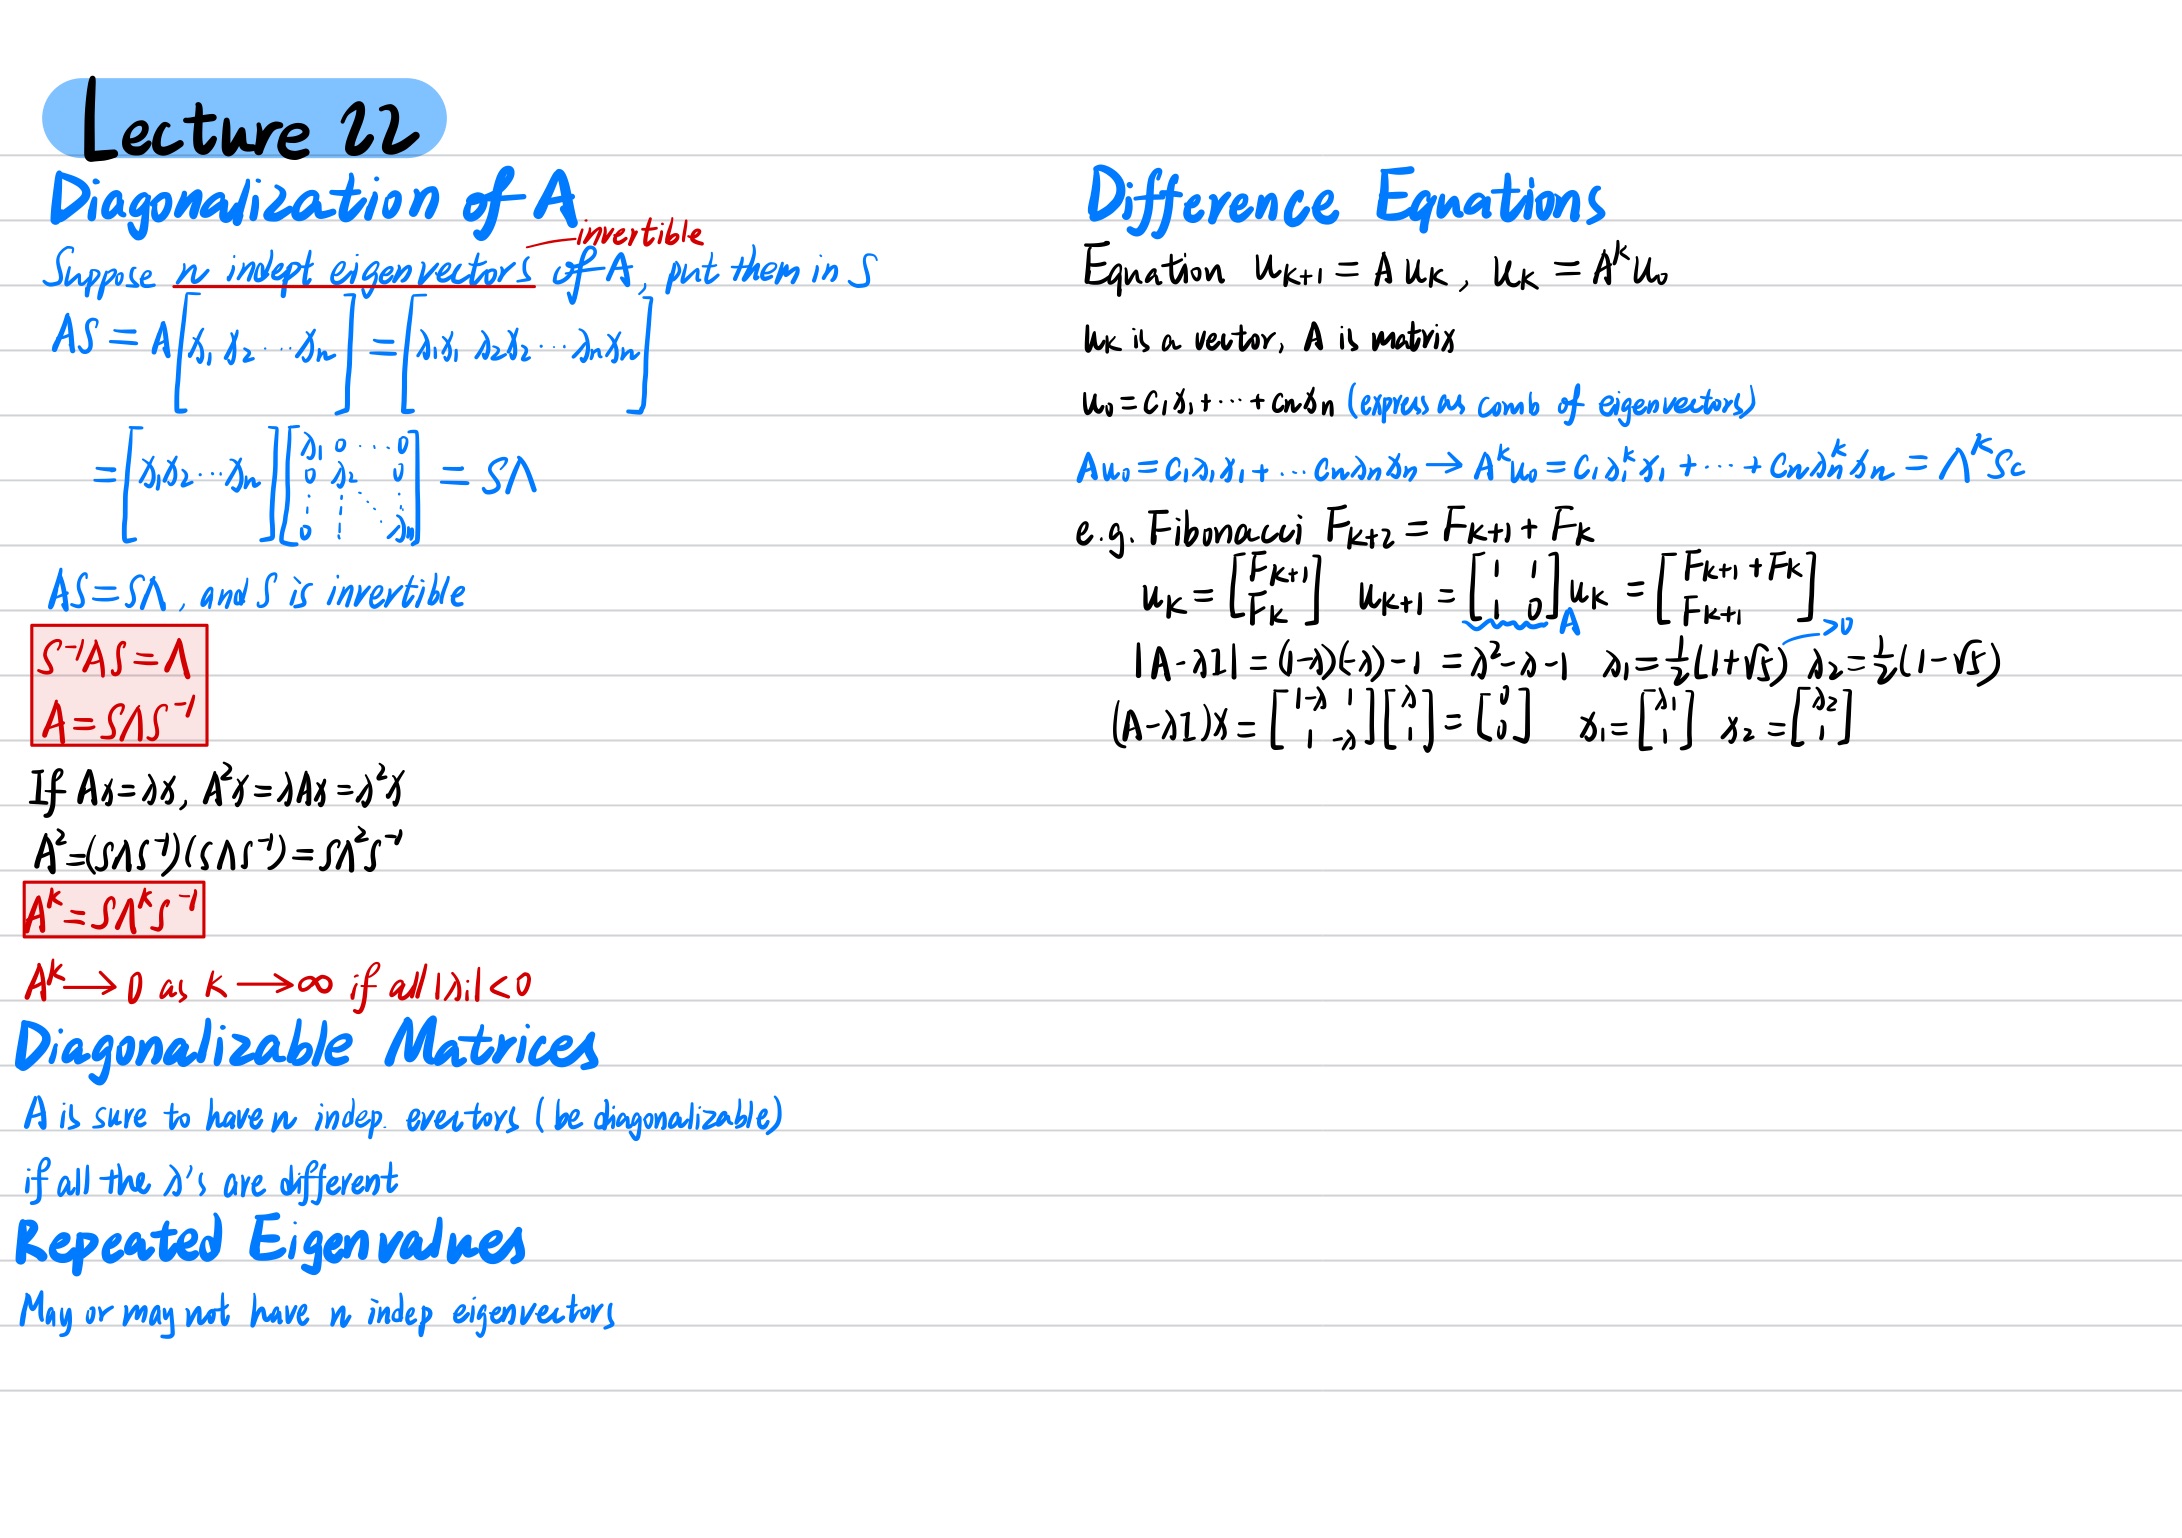 Lecture 22
Diagonalization of A
invertible
Suppose n indept eigenvectors of A, put them in S
AS = A[x₁ x₂ ⋯ xₙ] = [λ₁x₁ λ₂x₂ ⋯ λₙxₙ]
= [x₁ x₂ ⋯ xₙ] [λ₁ 0 ⋯ 0; 0 λ₂ 0; ⋮ ⋮ ⋱ ⋮; 0 ⋮ λₙ] = SΛ
AS = SΛ, and S is invertible
S⁻¹AS = Λ
A = SΛS⁻¹
If Ax = λx, A²x = λAx = λ²x
A² = (SΛS⁻¹)(SΛS⁻¹) = SΛ²S⁻¹
Aᵏ = SΛᵏS⁻¹
Aᵏ → 0 as k → ∞ if all |λᵢ| < 0
Diagonalizable Matrices
A is sure to have n indep. evectors (be diagonalizable)
if all the λ's are different
Repeated Eigenvalues
May or may not have n indep eigenvectors
Difference Equations
Equation uₖ₊₁ = A uₖ, uₖ = Aᵏu₀
uₖ is a vector, A is matrix
u₀ = c₁x₁ + ⋯ + cₙxₙ (express as comb of eigenvectors)
Au₀ = c₁λ₁x₁ + ⋯ cₙλₙxₙ → Aᵏu₀ = c₁λ₁ᵏx₁ + ⋯ + cₙλₙᵏxₙ = ΛᵏSc
e.g. Fibonacci Fₖ₊₂ = Fₖ₊₁ + Fₖ
uₖ = [Fₖ₊₁; Fₖ] uₖ₊₁ = [1 1; 1 0] uₖ = [Fₖ₊₁ + Fₖ; Fₖ₊₁]
A
>0
|A - λI| = (1-λ)(-λ) - 1 = λ² - λ - 1 λ₁ = ½(1+√5) λ₂ = ½(1-√5)
(A - λI)x = [1-λ 1; 1 -λ] [λ; 1] = [0; 0] x₁ = [λ₁; 1] x₂ = [λ₂; 1]